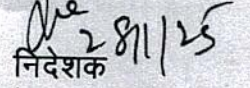 28/1/25
निदेशक